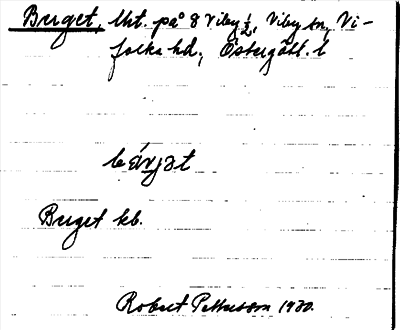 Burget, lht. på 8 Viby ½, Viby sn, Vi-
folka hd, Östergötl. l
bärjət
Burget kb.
Robert Pettersson 1930.